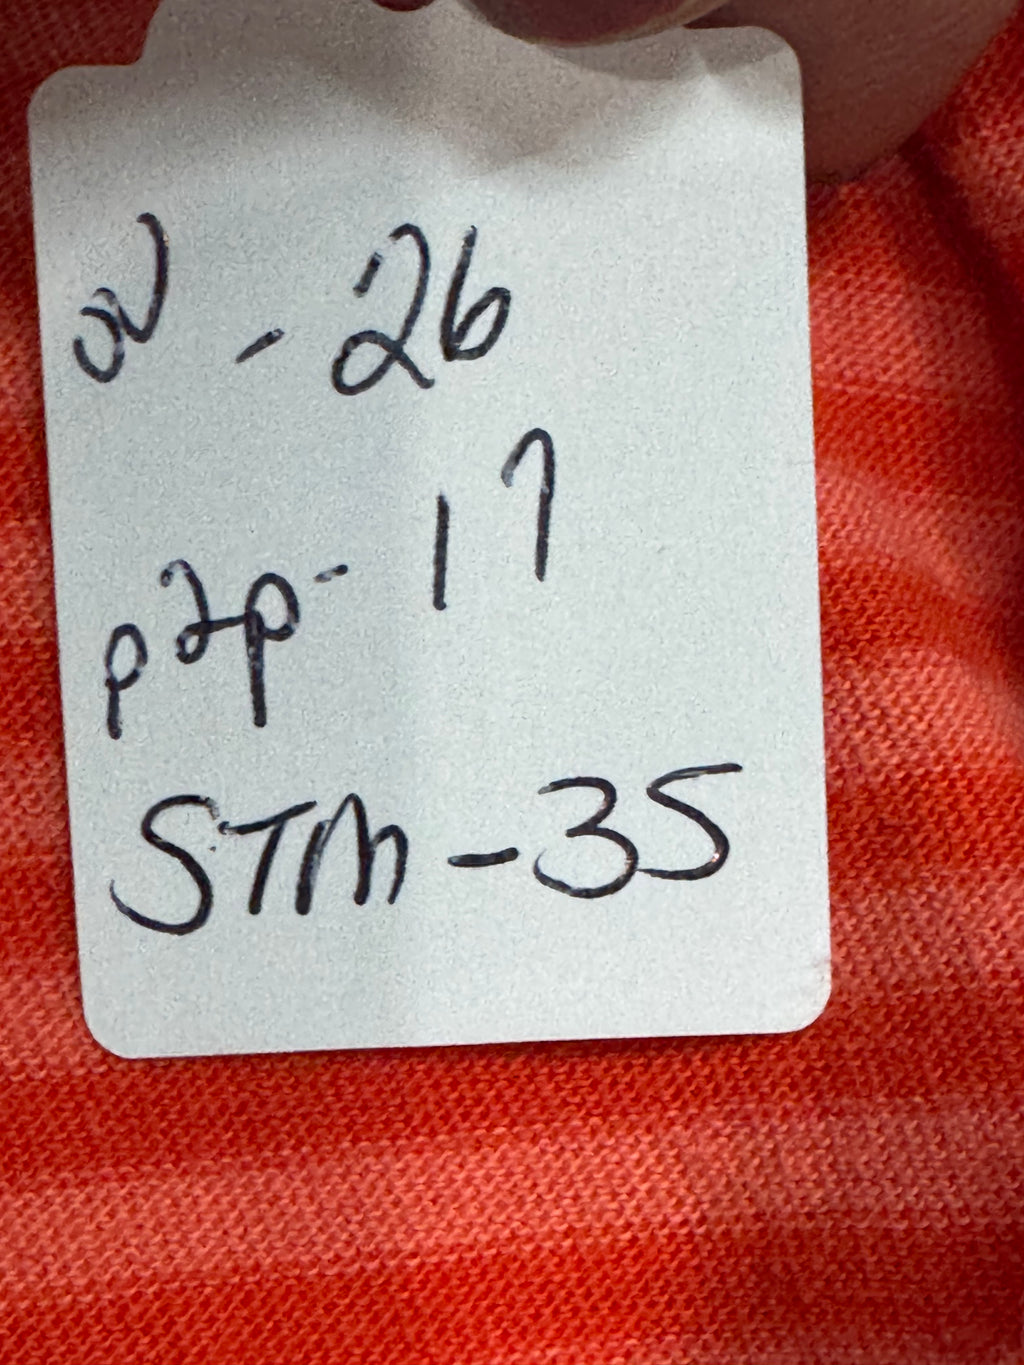 OV - 26
p2p - 17
STM - 35